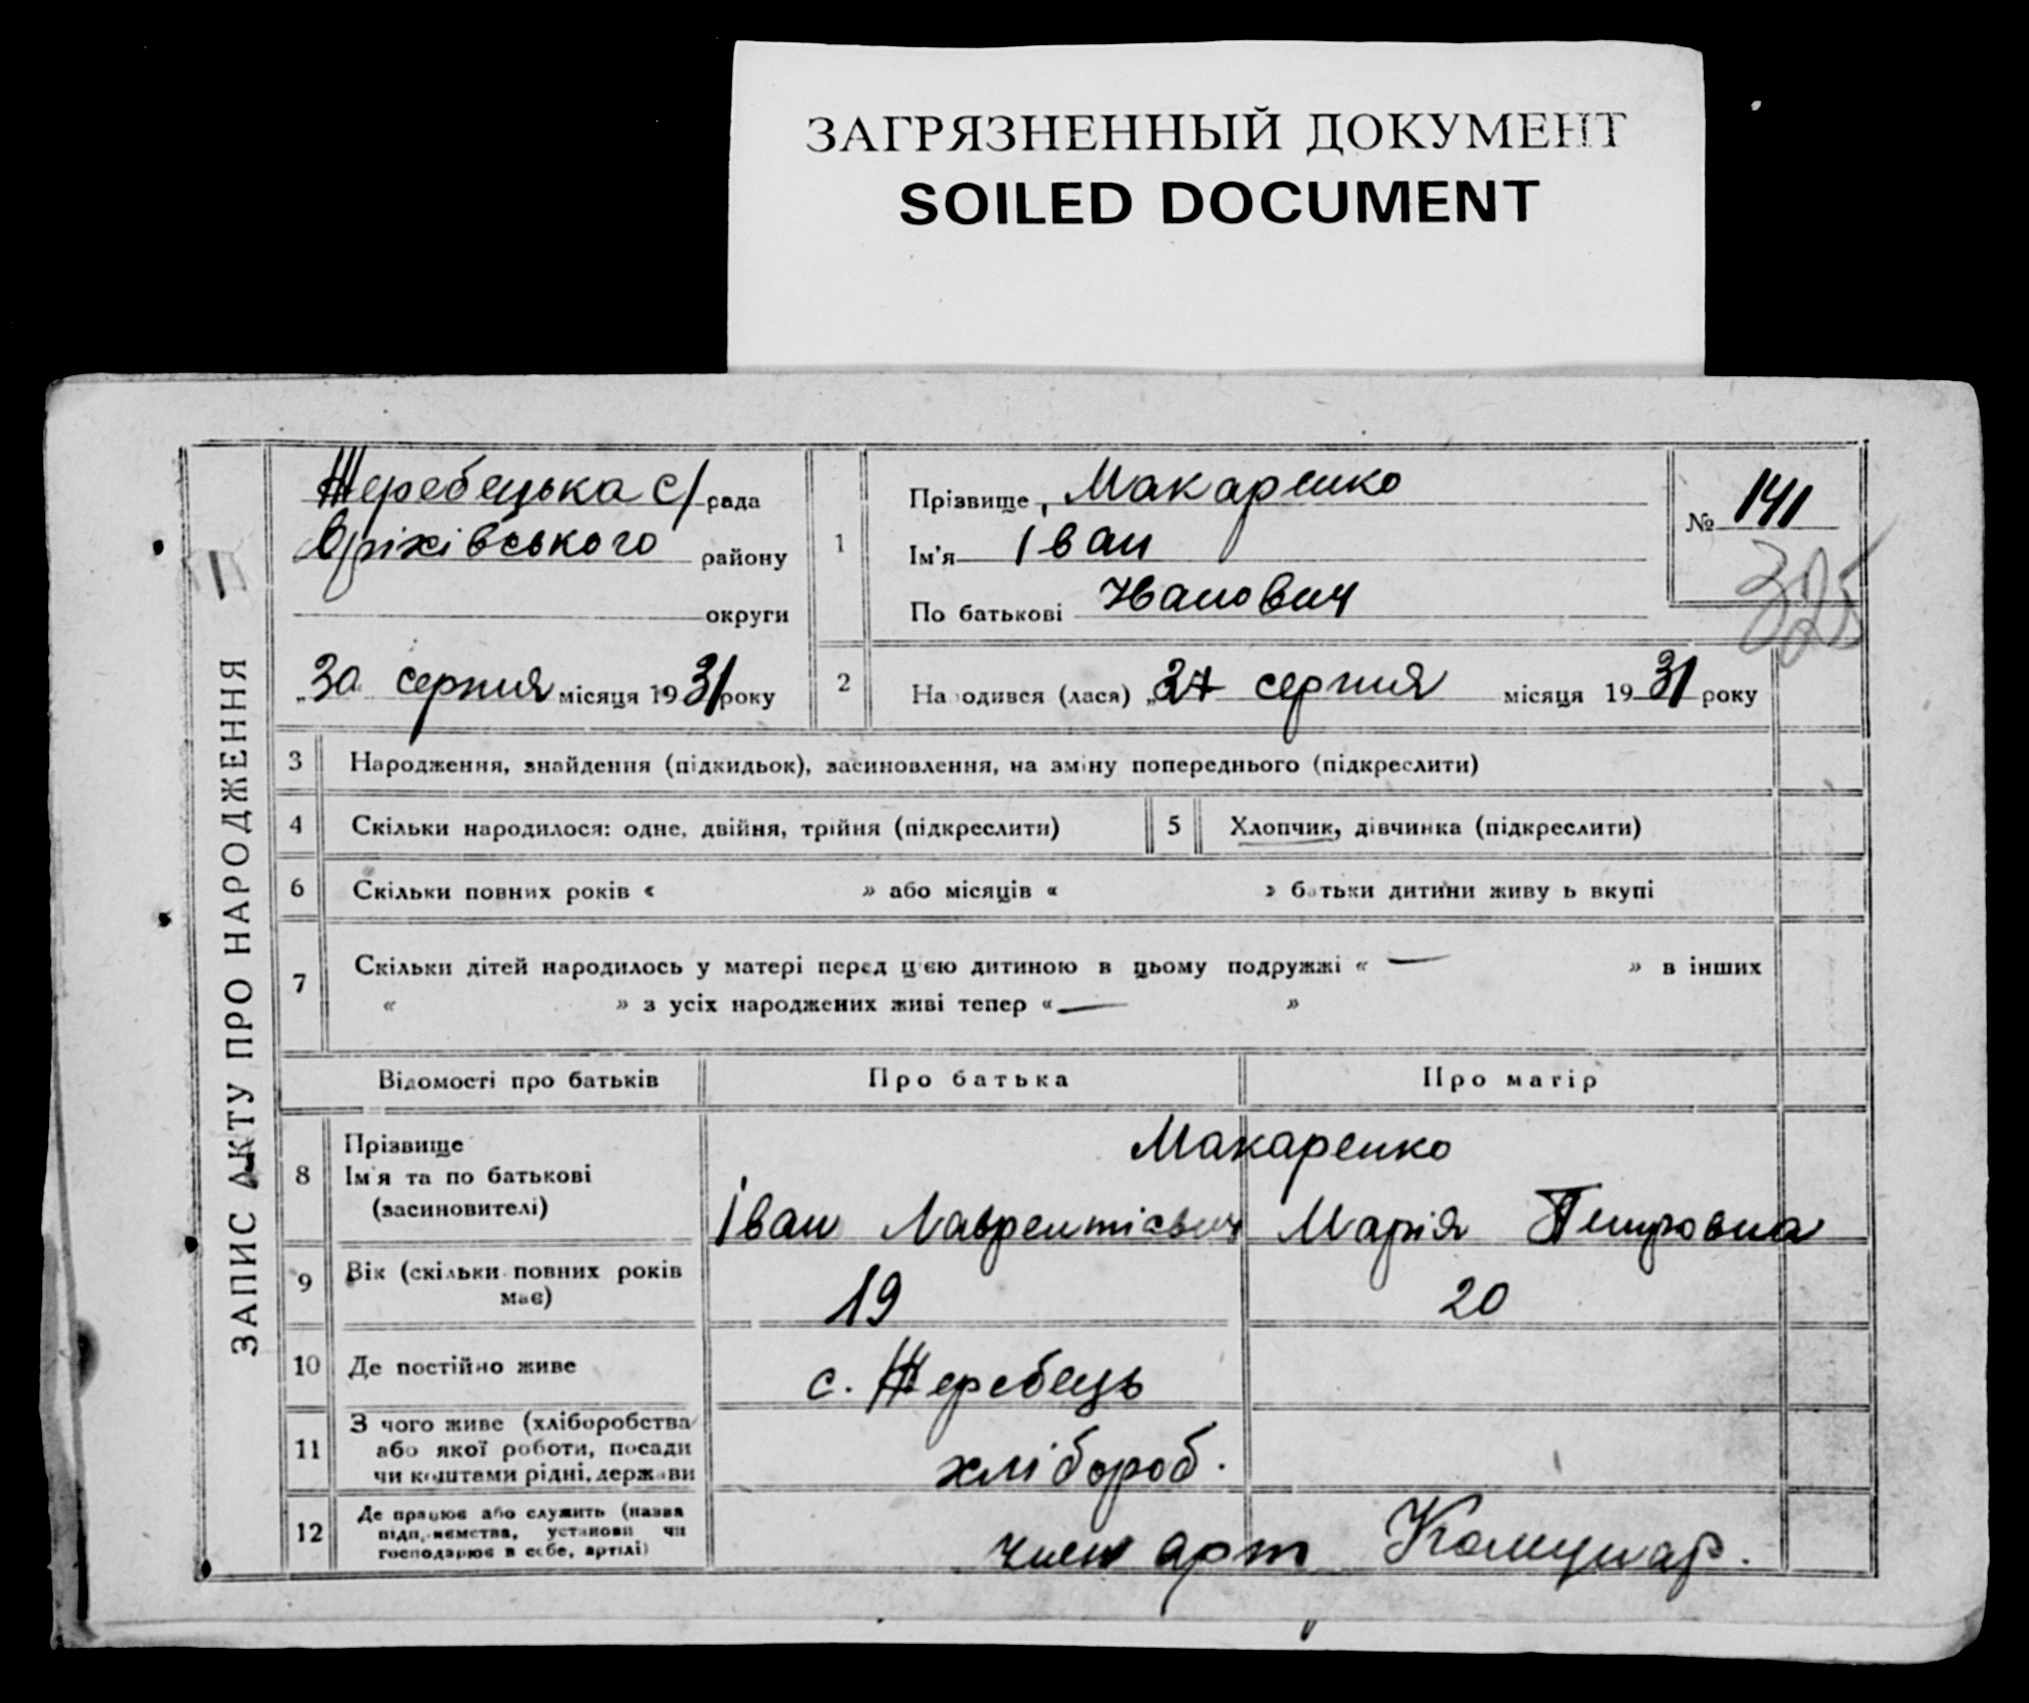 ЗАГРЯЗНЕННЫЙ ДОКУМЕНТ
SOILED DOCUMENT
ЗАПИС АКТУ ПРО НАРОДЖЕННЯ
Жеребецька с/рада
Оріхівського району
округи
„30 серпня місяця 1931 року
1
Прізвище Макаренко
Ім'я Іван
По батькові Иванович
№ 141
325
2
На одився (лася) „27 серпня місяця 1931 року
3 Народження, знайдення (підкидьок), засиновлення, на зміну попереднього (підкреслити)
4 Скільки народилося: одне, двійня, трійня (підкреслити)
5 Хлопчик, дівчинка (підкреслити)
6 Скільки повних років « » або місяців « » батьки дитини живу ь вкупі
7 Скільки дітей народилось у матері перед цією дитиною в цьому подружжі « — » в інших
« » з усіх народжених живі тепер « — »
Відомості про батьків Про батька Про матір
8 Прізвище
Ім'я та по батькові
(засиновителі)
Макаренко
Іван Лаврентієвич Марія Петровна
9 Вік (скільки повних років
має)
19 20
10 Де постійно живе с. Жеребець
11 З чого живе (хліборобства
або якої роботи, посади
чи коштами рідні, держави
хлібороб.
12 Де працює або служить (назва
підприємства, установи чи
господарює в себе, артілі)
член арт Комунар.